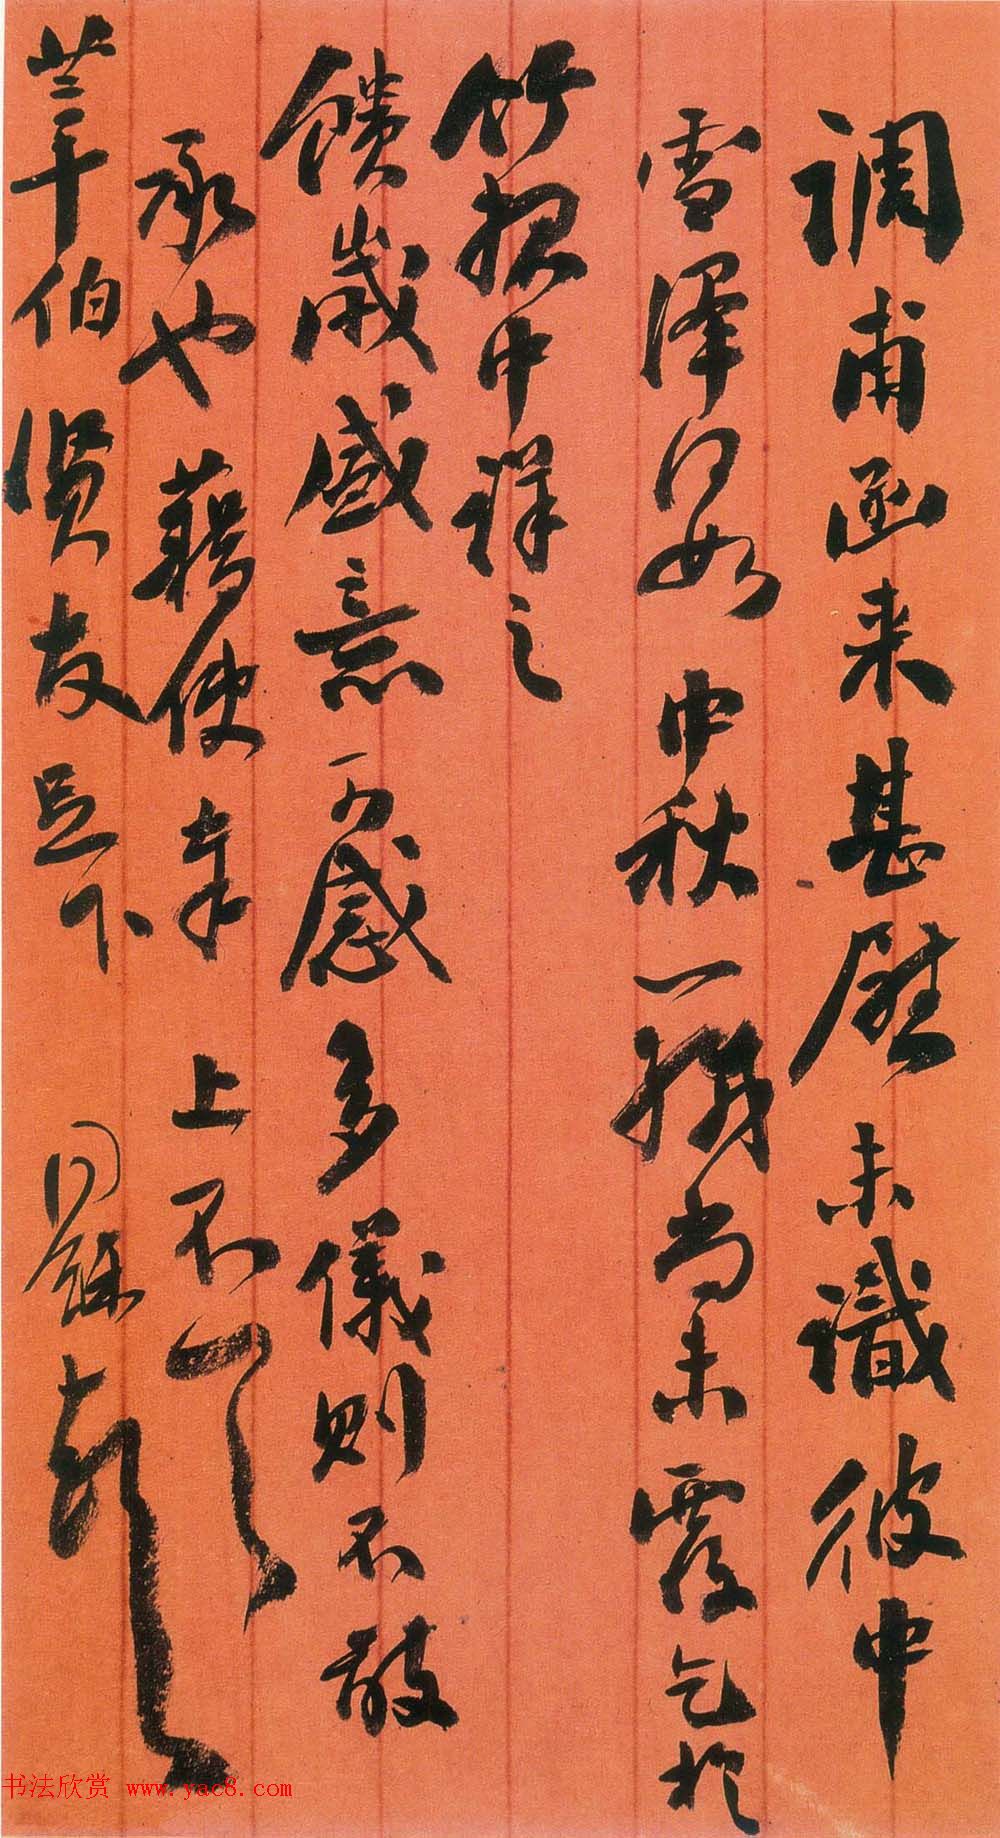 調甫函来甚慰未識彼中
雪澤何如中秋一緘尚未覆乞於
竹报中詳之
饋歲盛意可感多儀則不敢
承也藉使奉上不一一
莘伯贤友足下 同龢頓首
书法欣赏 www.yac8.com